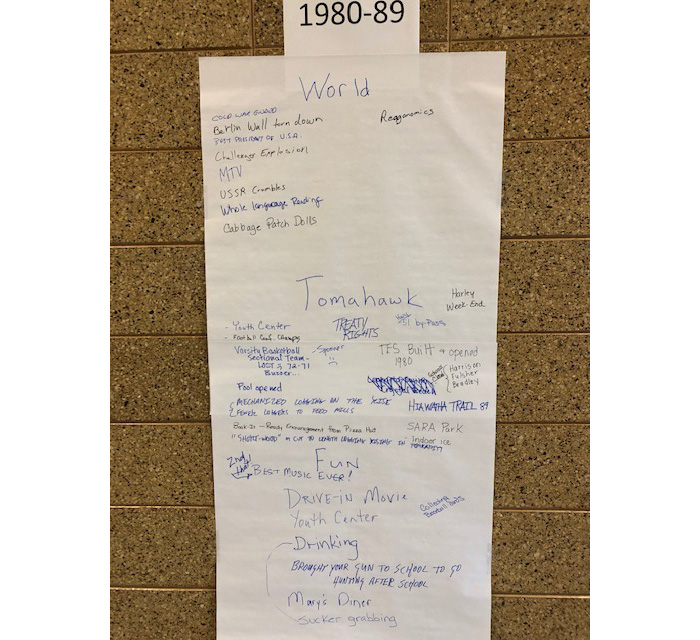 1980-89
World
COLD WAR
Berlin Wall torn down
Reagonomics
PRESIDENT OF U.S.A.
Challenger Explosion
MTV
USSR Crumbles
Whole language Reading
Cabbage Patch Dolls
Tomahawk
Harley
Week-End
- Youth Center
TREATY
RIGHTS
51 by-Pass
- Football Conf. Champs
Varsity Basketball
Sectional Team -
LOST 72-71
Buzzer...
TES Built & opened
1980
Schools
Close
Harrison
Fulsher
Bradley
Pool opened
MECHANIZED LOGGING ON THE RISE
FEWER LOGGERS TO FEED MILLS
HIAWATHA TRAIL 89
Book It - Reading Encouragement from Pizza Hut
SARA Park
Indoor ice
"SHORT-WOOD" CUT TO LENGTH LOGGING RISING IN POPULARITY
FUN
2nd that!
BEST MUSIC EVER!
DRIVE-IN Movie
Youth Center
Collecting
Baseball
Drinking
BROUGHT YOUR GUN TO SCHOOL TO GO
HUNTING AFTER SCHOOL
Mary's Diner
Sucker grabbing